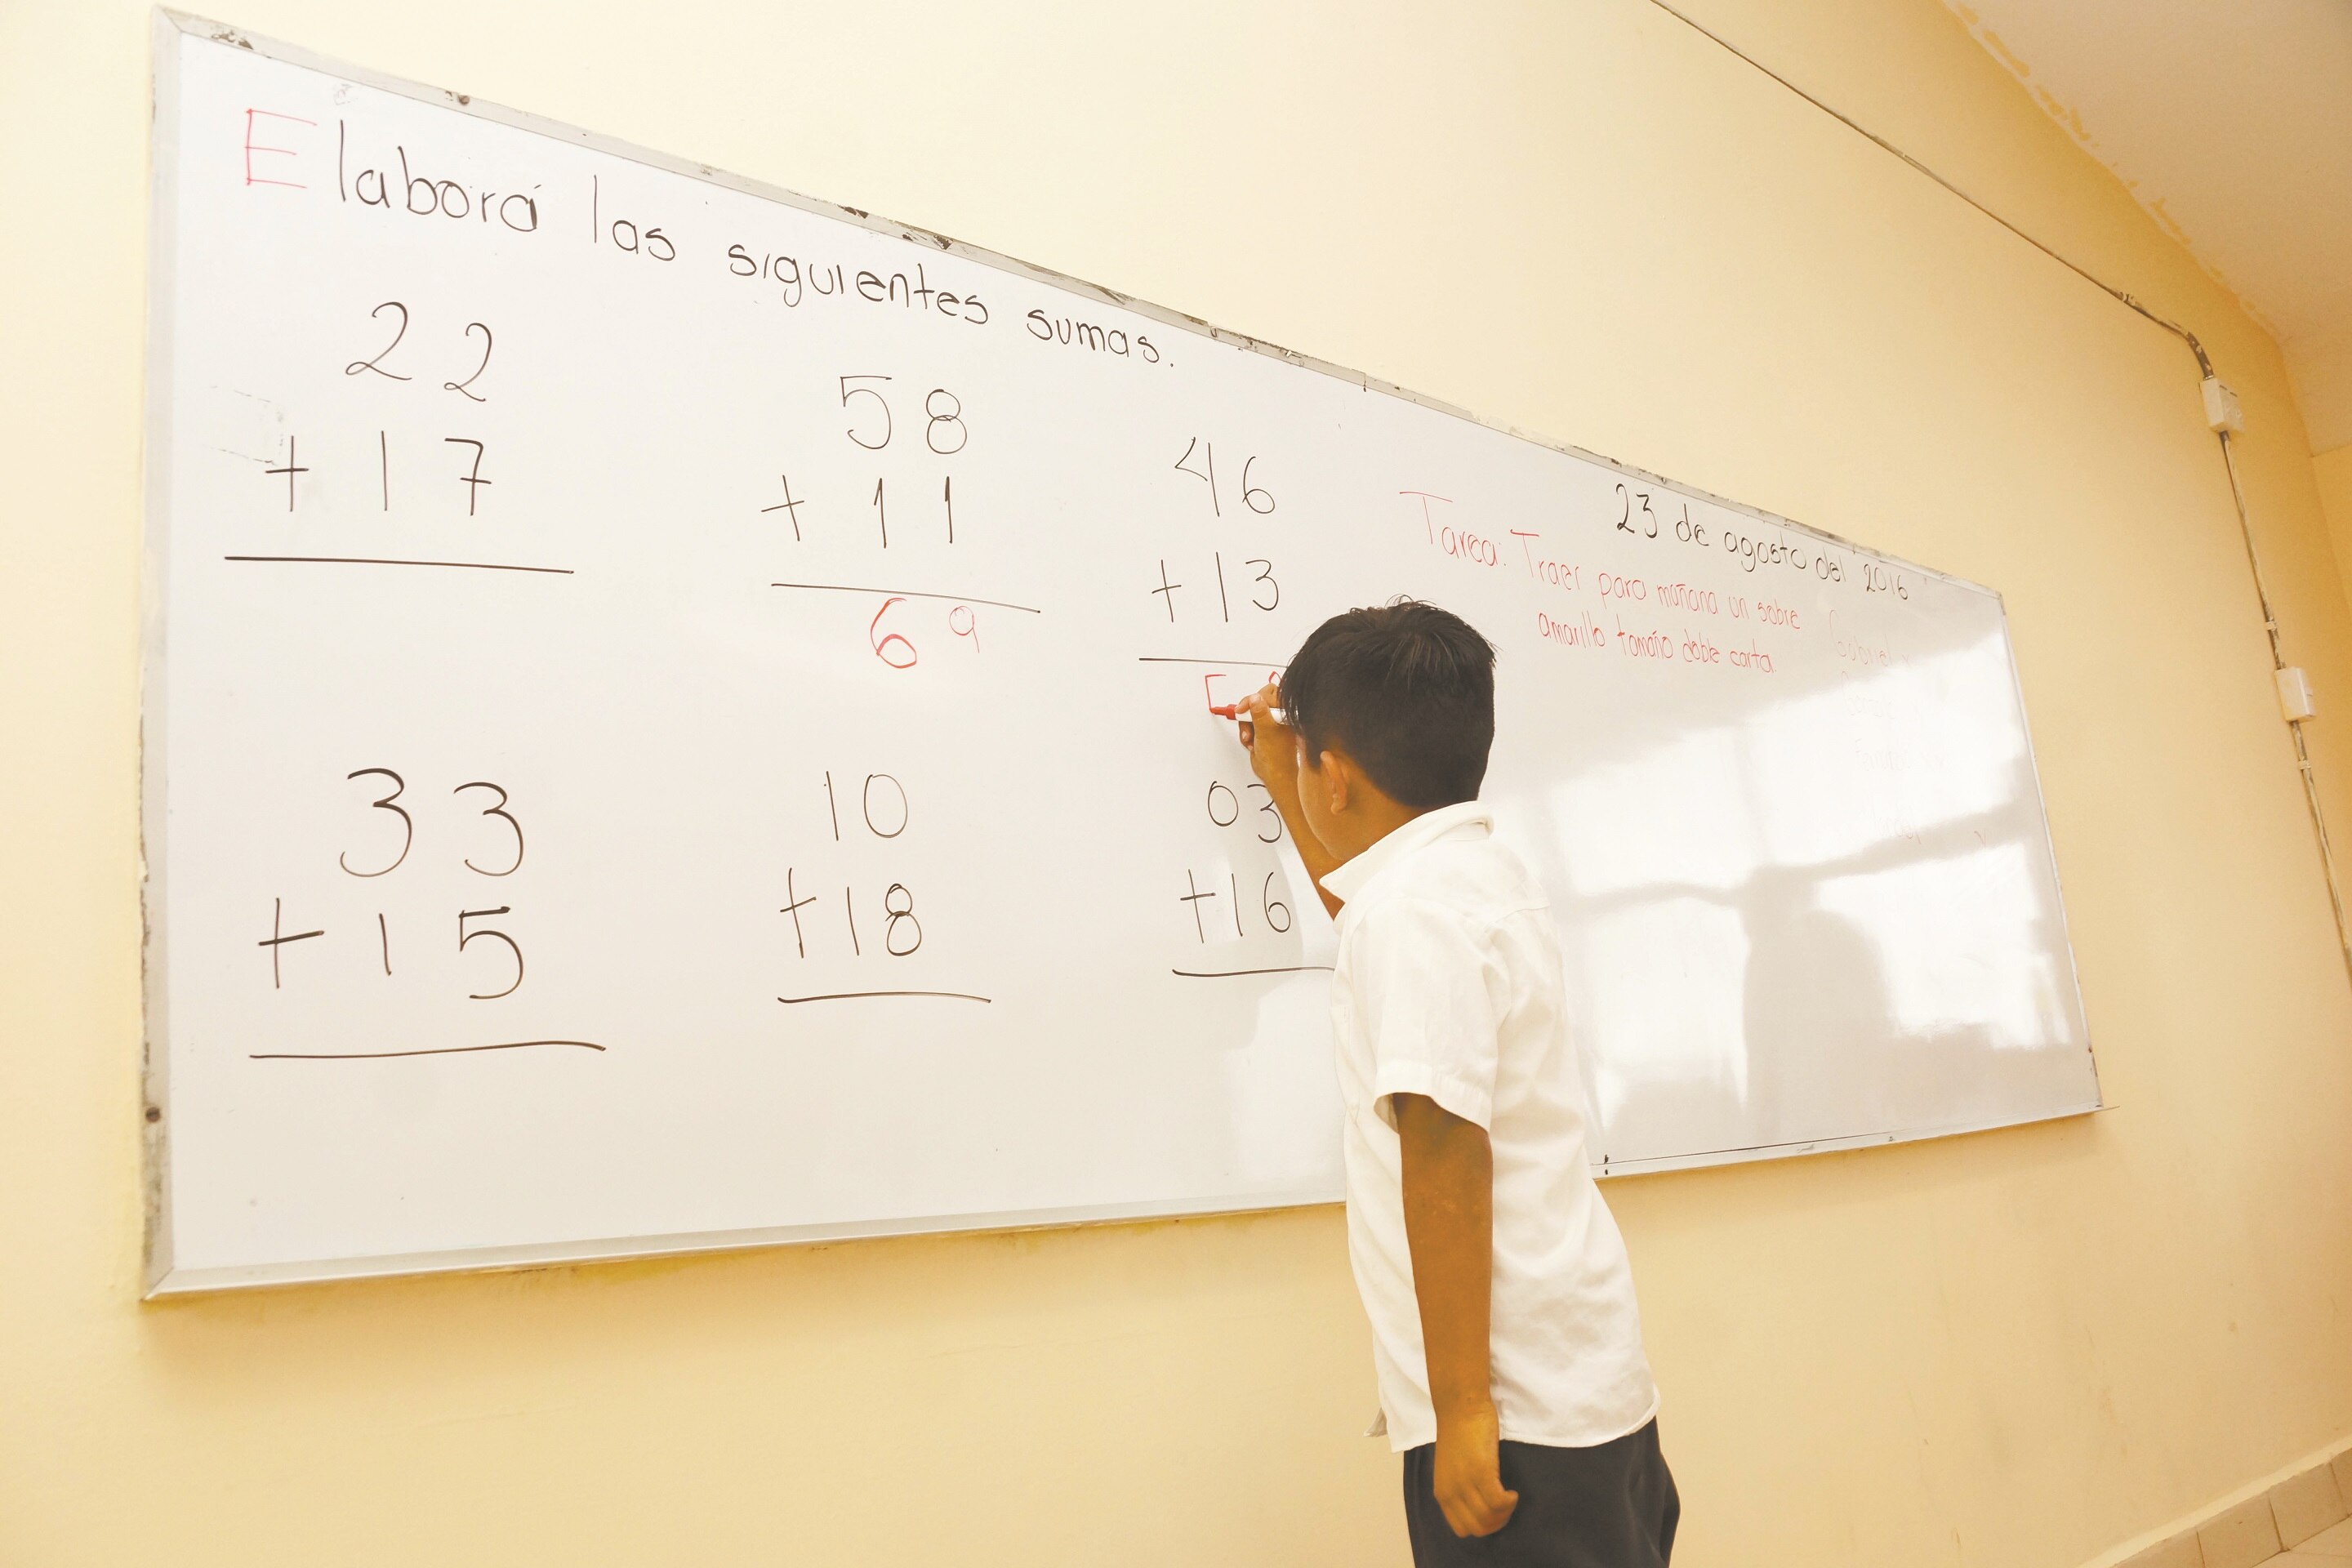 Elaborá las siguientes sumas.
23 de agosto del 2016
Tarea: Traer para mañana un sobre
amarillo tamaño doble carta
22
+ 17
58
+ 11
69
46
+ 13
33
+ 15
10
+ 18
03
+ 16